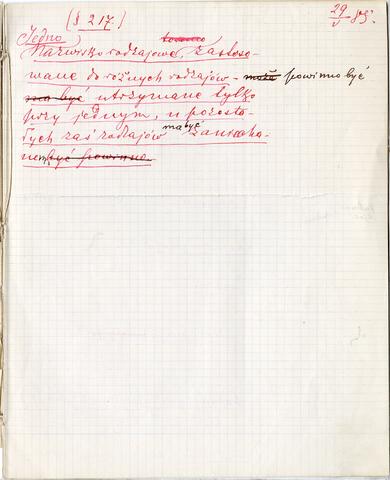 (§ 217)
29/V 85.
Jedno
Nazwisko rodzajowe, zastoso-
wane do różnych rodzajów - może powinno być
ma być utrzymane tylko
przy jednym, u pozosta-
łych zaś rodzajów ma być zaniecha-
nem być powinno.